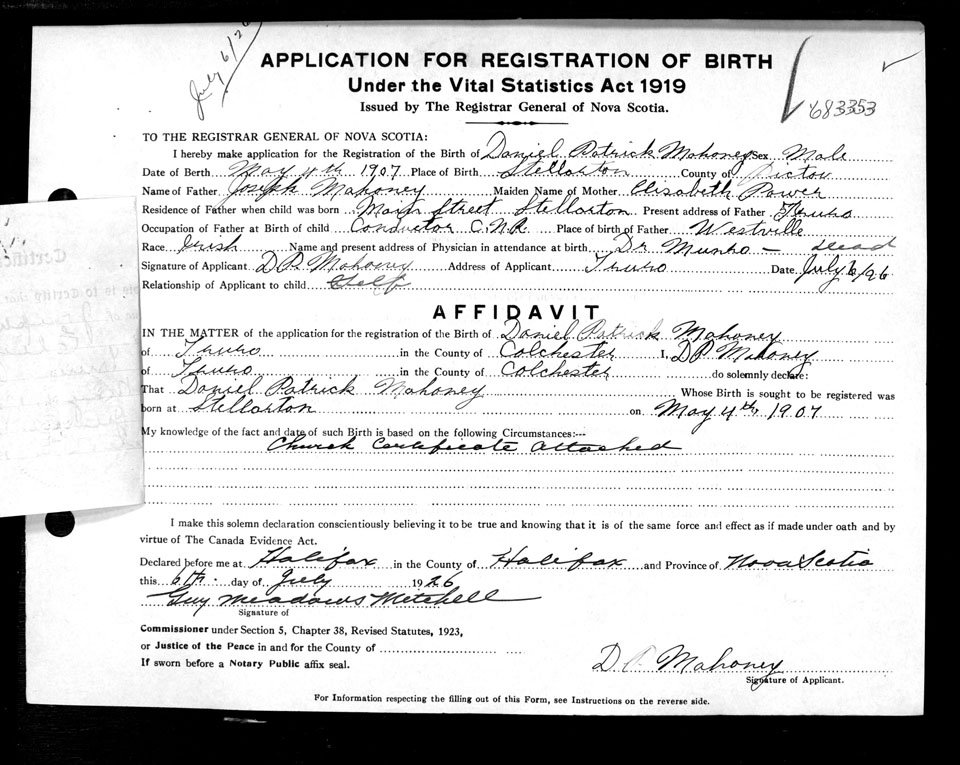 July 6/26
APPLICATION FOR REGISTRATION OF BIRTH
Under the Vital Statistics Act 1919
Issued by The Registrar General of Nova Scotia.
683353
TO THE REGISTRAR GENERAL OF NOVA SCOTIA:
I hereby make application for the Registration of the Birth of Daniel Patrick Mahoney Sex Male
Date of Berth May 4th 1907 Place of Birth Stellarton County of Pictou
Name of Father Joseph Mahoney Maiden Name of Mother Elisabeth Power
Residence of Father when child was born Main Street Stellarton Present address of Father Truro
Occupation of Father at Birth of child Conductor C.N.R. Place of birth of Father Westville
Race Irish Name and present address of Physician in attendance at birth Dr Munro – dead
Signature of Applicant D P Mahoney Address of Applicant Truro Date July 6/26
Relationship of Applicant to child Self
AFFIDAVIT
IN THE MATTER of the application for the registration of the Birth of Daniel Patrick Mahoney
of Truro in the County of Colchester I, D P Mahoney
of Truro in the County of Colchester do solemnly declare:
That Daniel Patrick Mahoney Whose Birth is sought to be registered was
born at Stellarton on May 4th 1907
My knowledge of the fact and date of such Birth is based on the following Circumstances:--
Church Certificate attached
I make this solemn declaration conscientiously believing it to be true and knowing that it is of the same force and effect as if made under oath and by
virtue of The Canada Evidence Act.
Declared before me at Halifax in the County of Halifax and Province of Nova Scotia
this 6th day of July 1926
Guy Meadows Mitchell
Signature of
Commissioner under Section 5, Chapter 38, Revised Statutes, 1923,
or Justice of the Peace in and for the County of
If sworn before a Notary Public affix seal.
D P Mahoney
Signature of Applicant.
For Information respecting the filling out of this Form, see Instructions on the reverse side.